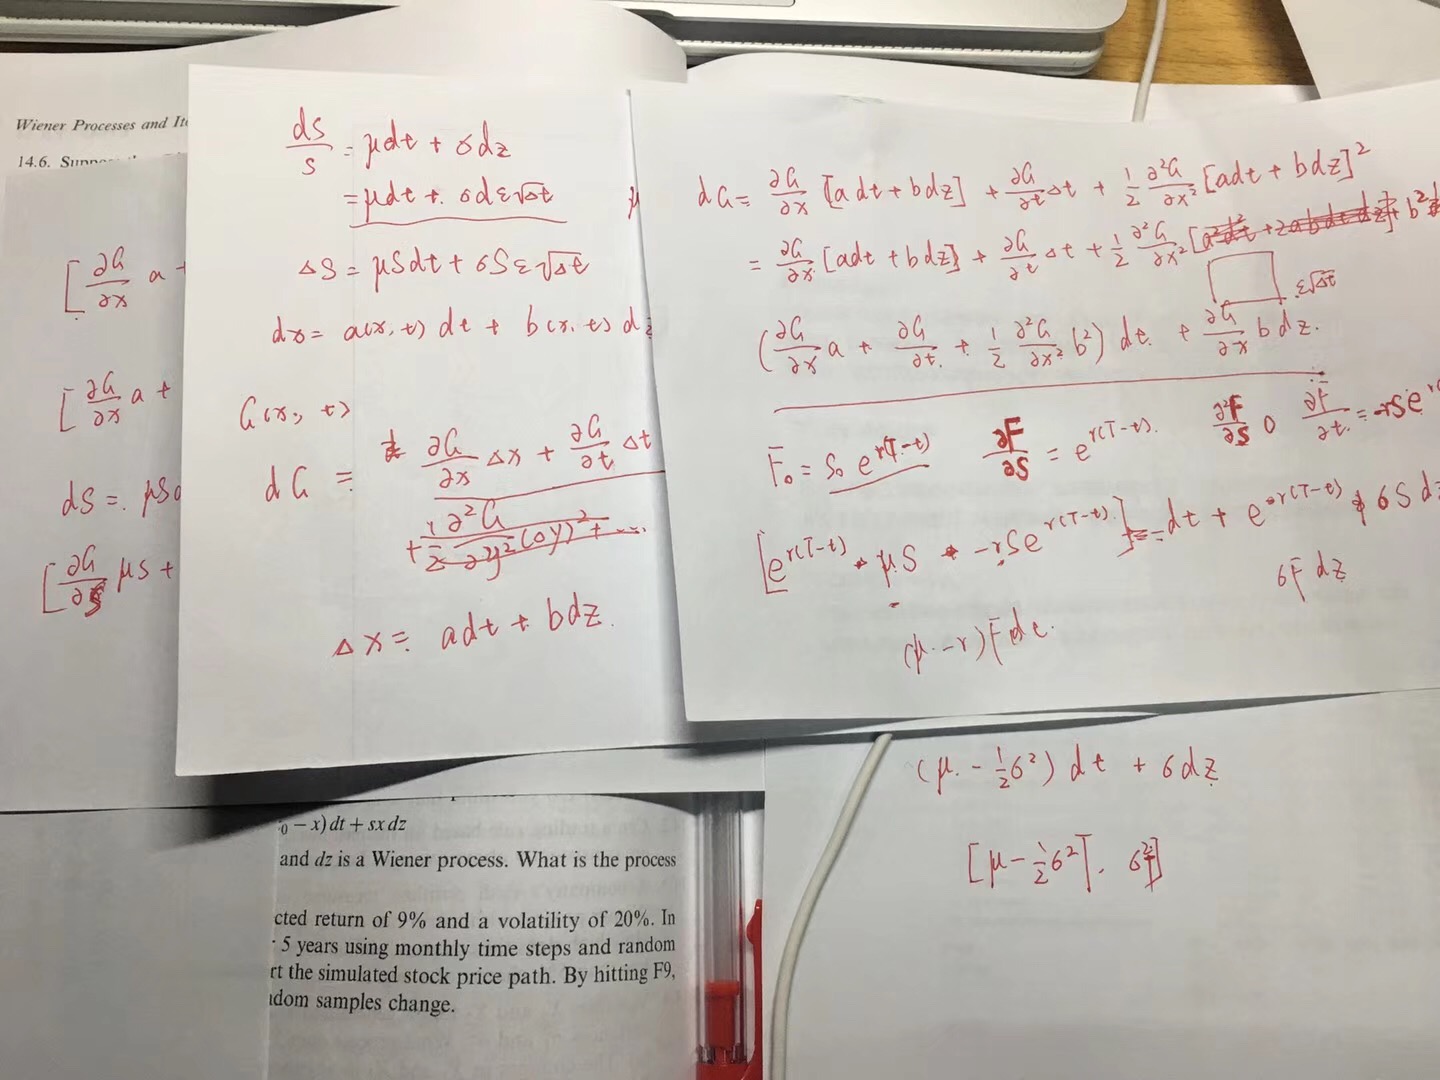 Wiener Processes and Itô
14.6.
[∂G/∂x a +
[∂G/∂x a +
dS = μS
[∂G/∂S μS +
dS/S = μdt + σdz
= μdt + σdε√Δt
ΔS = μSdt + σSε√Δt
dx = a(x, t) dt + b(x, t) dz
G(x, t)
dG = ∂G/∂x Δx + ∂G/∂t Δt
+ 1/2 ∂²G/∂y² (Δy)² + ....
Δx = adt + bdz
μ
dG = ∂G/∂x [adt + bdz] + ∂G/∂t Δt + 1/2 ∂²G/∂x² [adt + bdz]²
= ∂G/∂x [adt + bdz] + ∂G/∂t Δt + 1/2 ∂²G/∂x² [a²dt² + 2abdtdz] + b²d
ε√Δt
(∂G/∂x a + ∂G/∂t + 1/2 ∂²G/∂x² b²) dt + ∂G/∂x b dz.
F₀ = S₀ e^{r(T-t)} ∂F/∂S = e^{r(T-t)} ∂²F/∂S 0 ∂F/∂t = -rSe^{r(
[e^{r(T-t)} · μS -rSe^{r(T-t)}] dt + e^{r(T-t)} σS dz
σF dz
(μ - r)Fdt.
(μ - 1/2 σ²) dt + σdz
[μ - 1/2 σ²]T. σ²T]
0 − x) dt + sx dz
and dz is a Wiener process. What is the process
cted return of 9% and a volatility of 20%. In
5 years using monthly time steps and random
rt the simulated stock price path. By hitting F9,
ndom samples change.